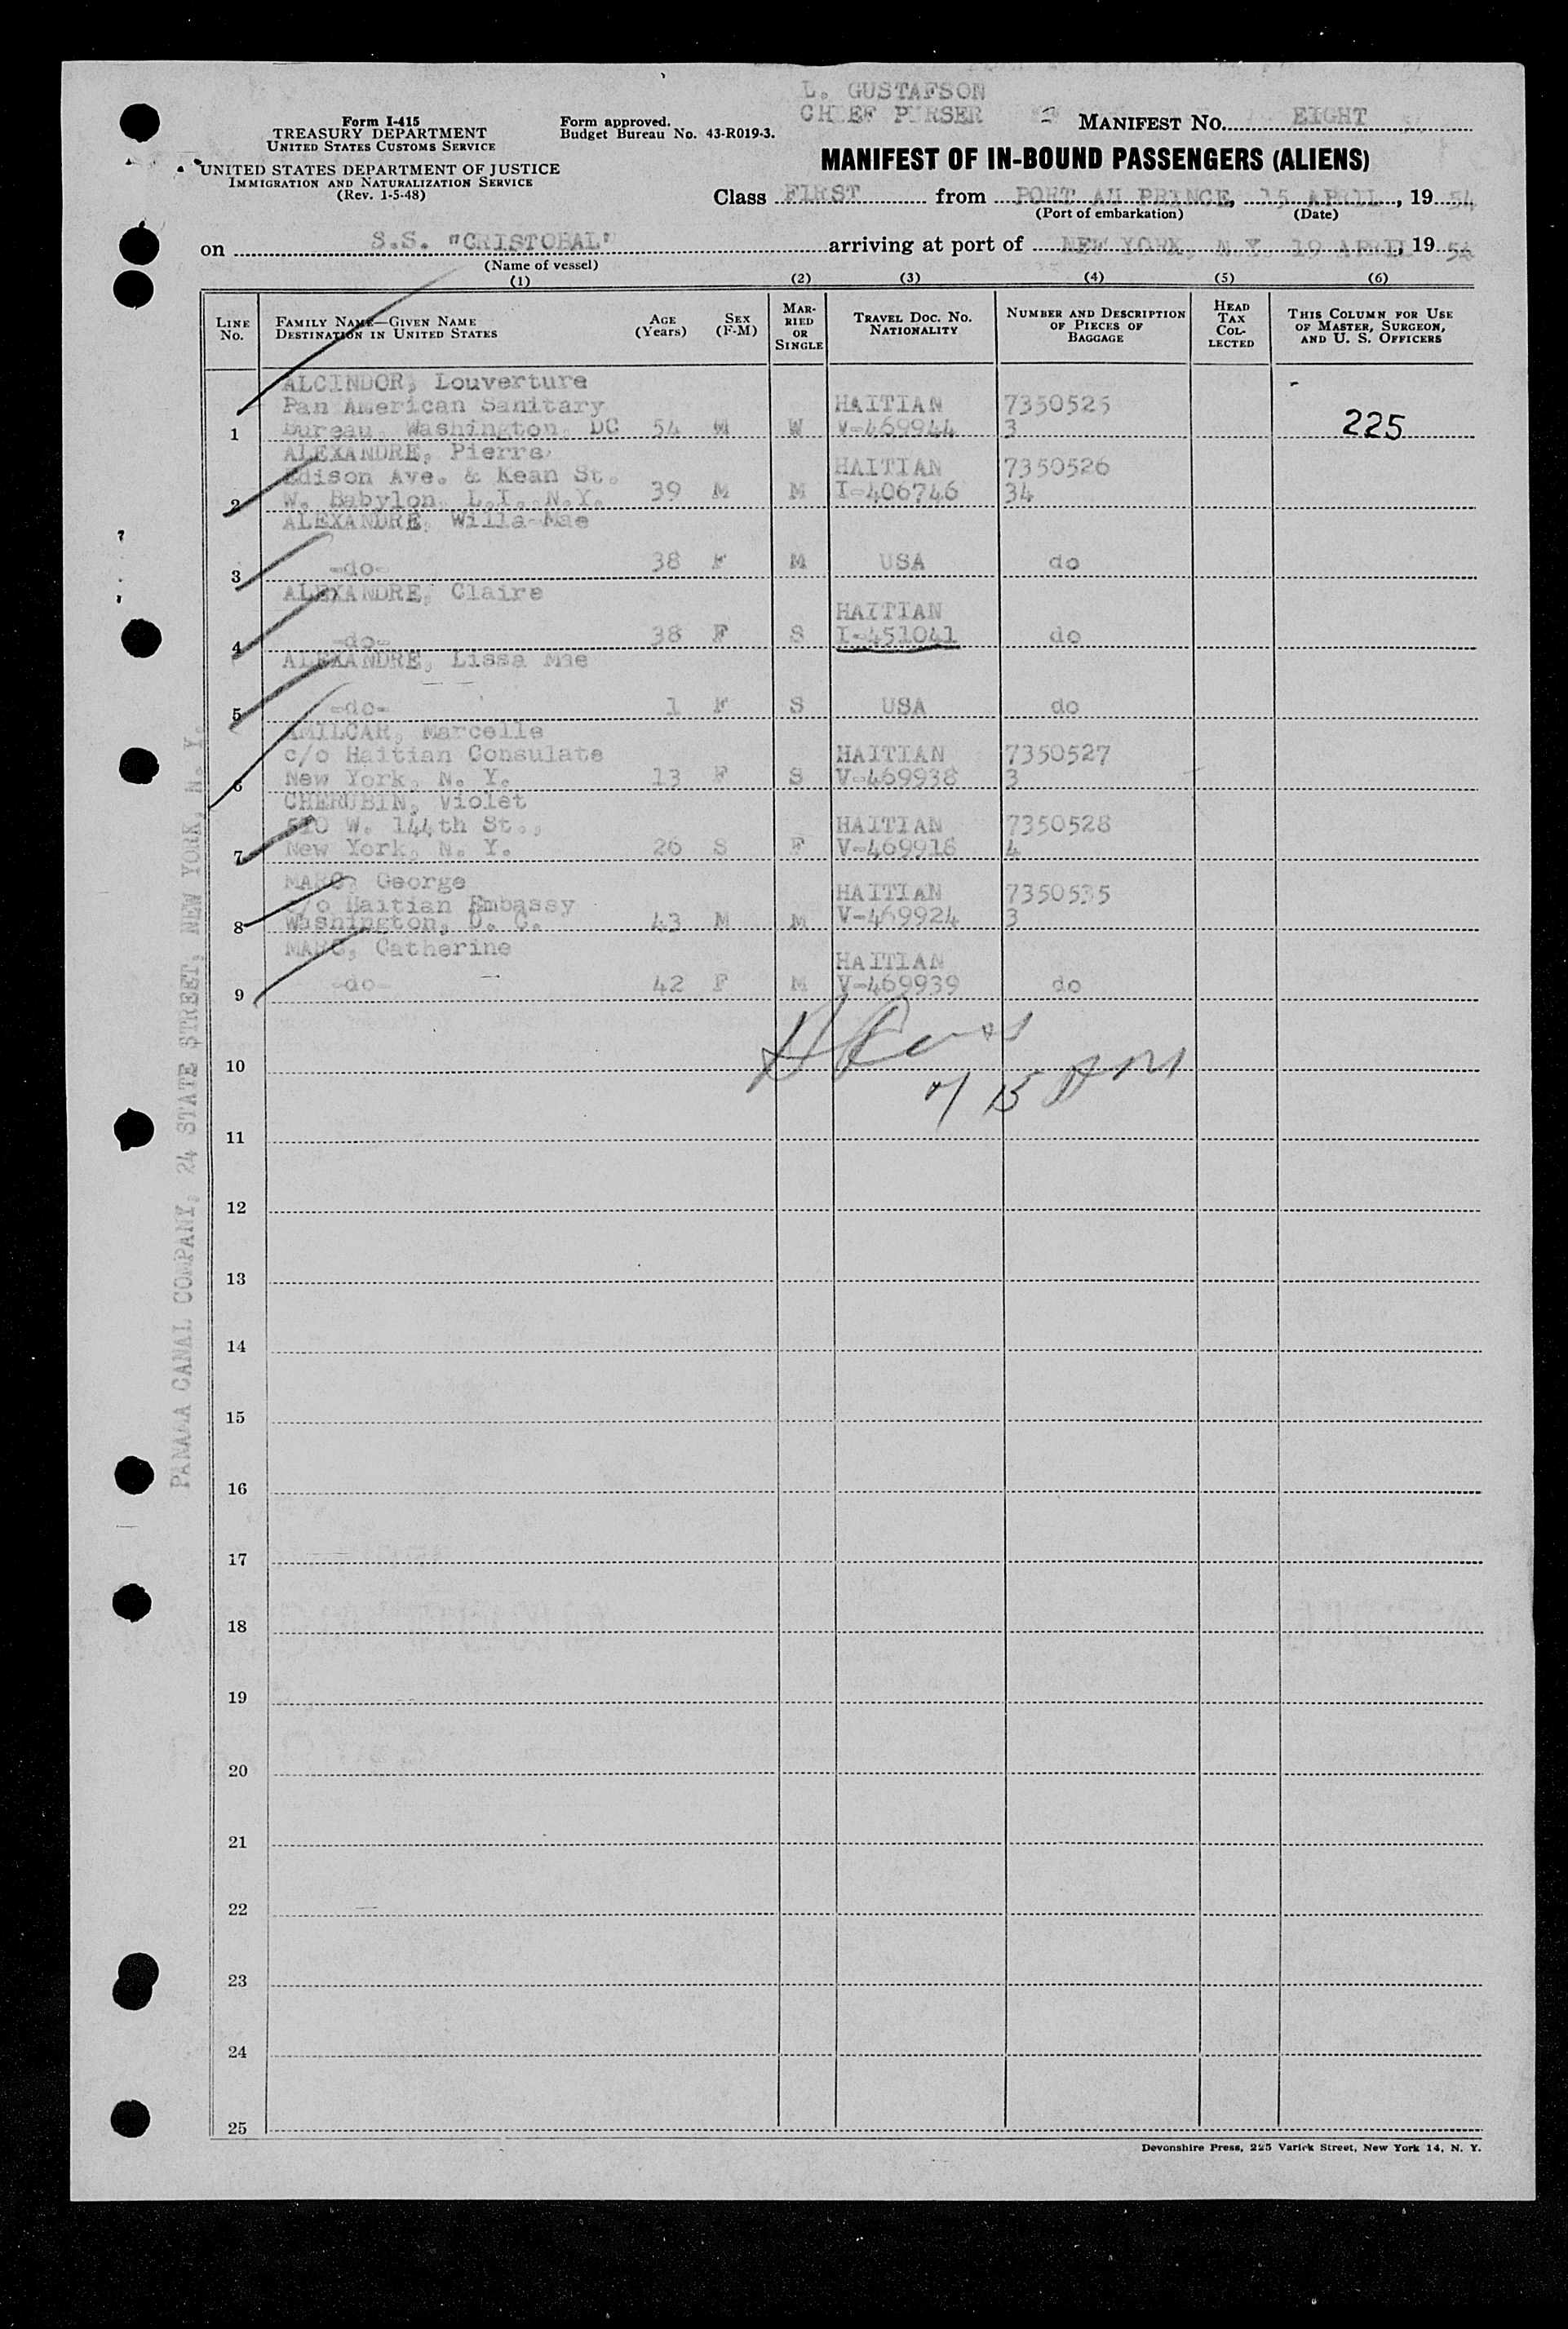 L. GUSTAFSON
CHIEF PURSER
Form I-415
TREASURY DEPARTMENT
UNITED STATES CUSTOMS SERVICE
UNITED STATES DEPARTMENT OF JUSTICE
IMMIGRATION AND NATURALIZATION SERVICE
(Rev. 1-5-48)
Form approved.
Budget Bureau No. 43-R019-3.
MANIFEST No. EIGHT
MANIFEST OF IN-BOUND PASSENGERS (ALIENS)
Class FIRST from PORT AU PRINCE, 15 APRIL, 19 54
(Port of embarkation) (Date)
on S.S. "CRISTOBAL" arriving at port of NEW YORK, N.Y. 19 APRIL, 19 54
(Name of vessel)
(1) (2) (3) (4) (5) (6)
LINE No. FAMILY NAME—GIVEN NAME DESTINATION IN UNITED STATES AGE (Years) SEX (F-M) MARRIED OR SINGLE TRAVEL DOC. No. NATIONALITY NUMBER AND DESCRIPTION OF PIECES OF BAGGAGE HEAD TAX COLLECTED THIS COLUMN FOR USE OF MASTER, SURGEON, AND U. S. OFFICERS
ALCINDOR, Louverture
Pan American Sanitary HAITIAN 7350525
1 Bureau, Washington, DC 54 M W V-469944 3 225
ALEXANDRE, Pierre
Edison Ave. & Kean St. HAITIAN 7350526
2 W. Babylon, L.I. N.Y. 39 M M I-406746 34
ALEXANDRE, Willa-Mae
3 -do- 38 F M USA do
ALEXANDRE, Claire
HAITIAN
4 -do- 38 F S I-451041 do
ALEXANDRE, Lissa Mae
5 -do- 1 F S USA do
AMILCAR, Marcelle
c/o Haitian Consulate HAITIAN 7350527
6 New York, N. Y. 13 F S V-469938 3
CHERUBIN, Violet
W. 144th St., HAITIAN 7350528
7 New York, N. Y. 26 S F V-469918 4
MARC, George
c/o Haitian Embassy HAITIAN 7350535
8 Washington, D. C. 43 M M V-469924 3
MARC, Catherine
HAITIAN
9 -do- 42 F M V-469939 do
10
11
12
13
14
15
16
17
18
19
20
21
22
23
24
25
PANAMA CANAL COMPANY, 24 STATE STREET, NEW YORK, N. Y.
Devonshire Press, 225 Varick Street, New York 14, N. Y.